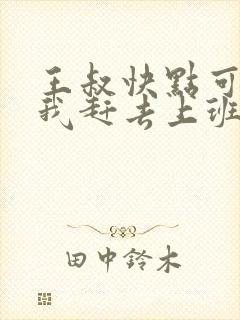 王叔快點可
我赶去上班
田中鈴木